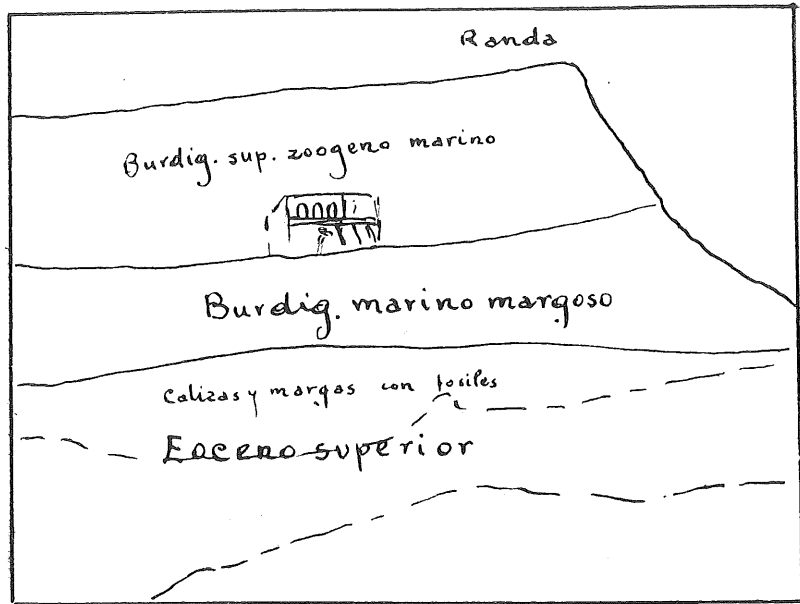 Randa
Burdig. sup. zoogeno marino
Burdig. marino margoso
Calizas y margas con fosiles
Eoceno superior